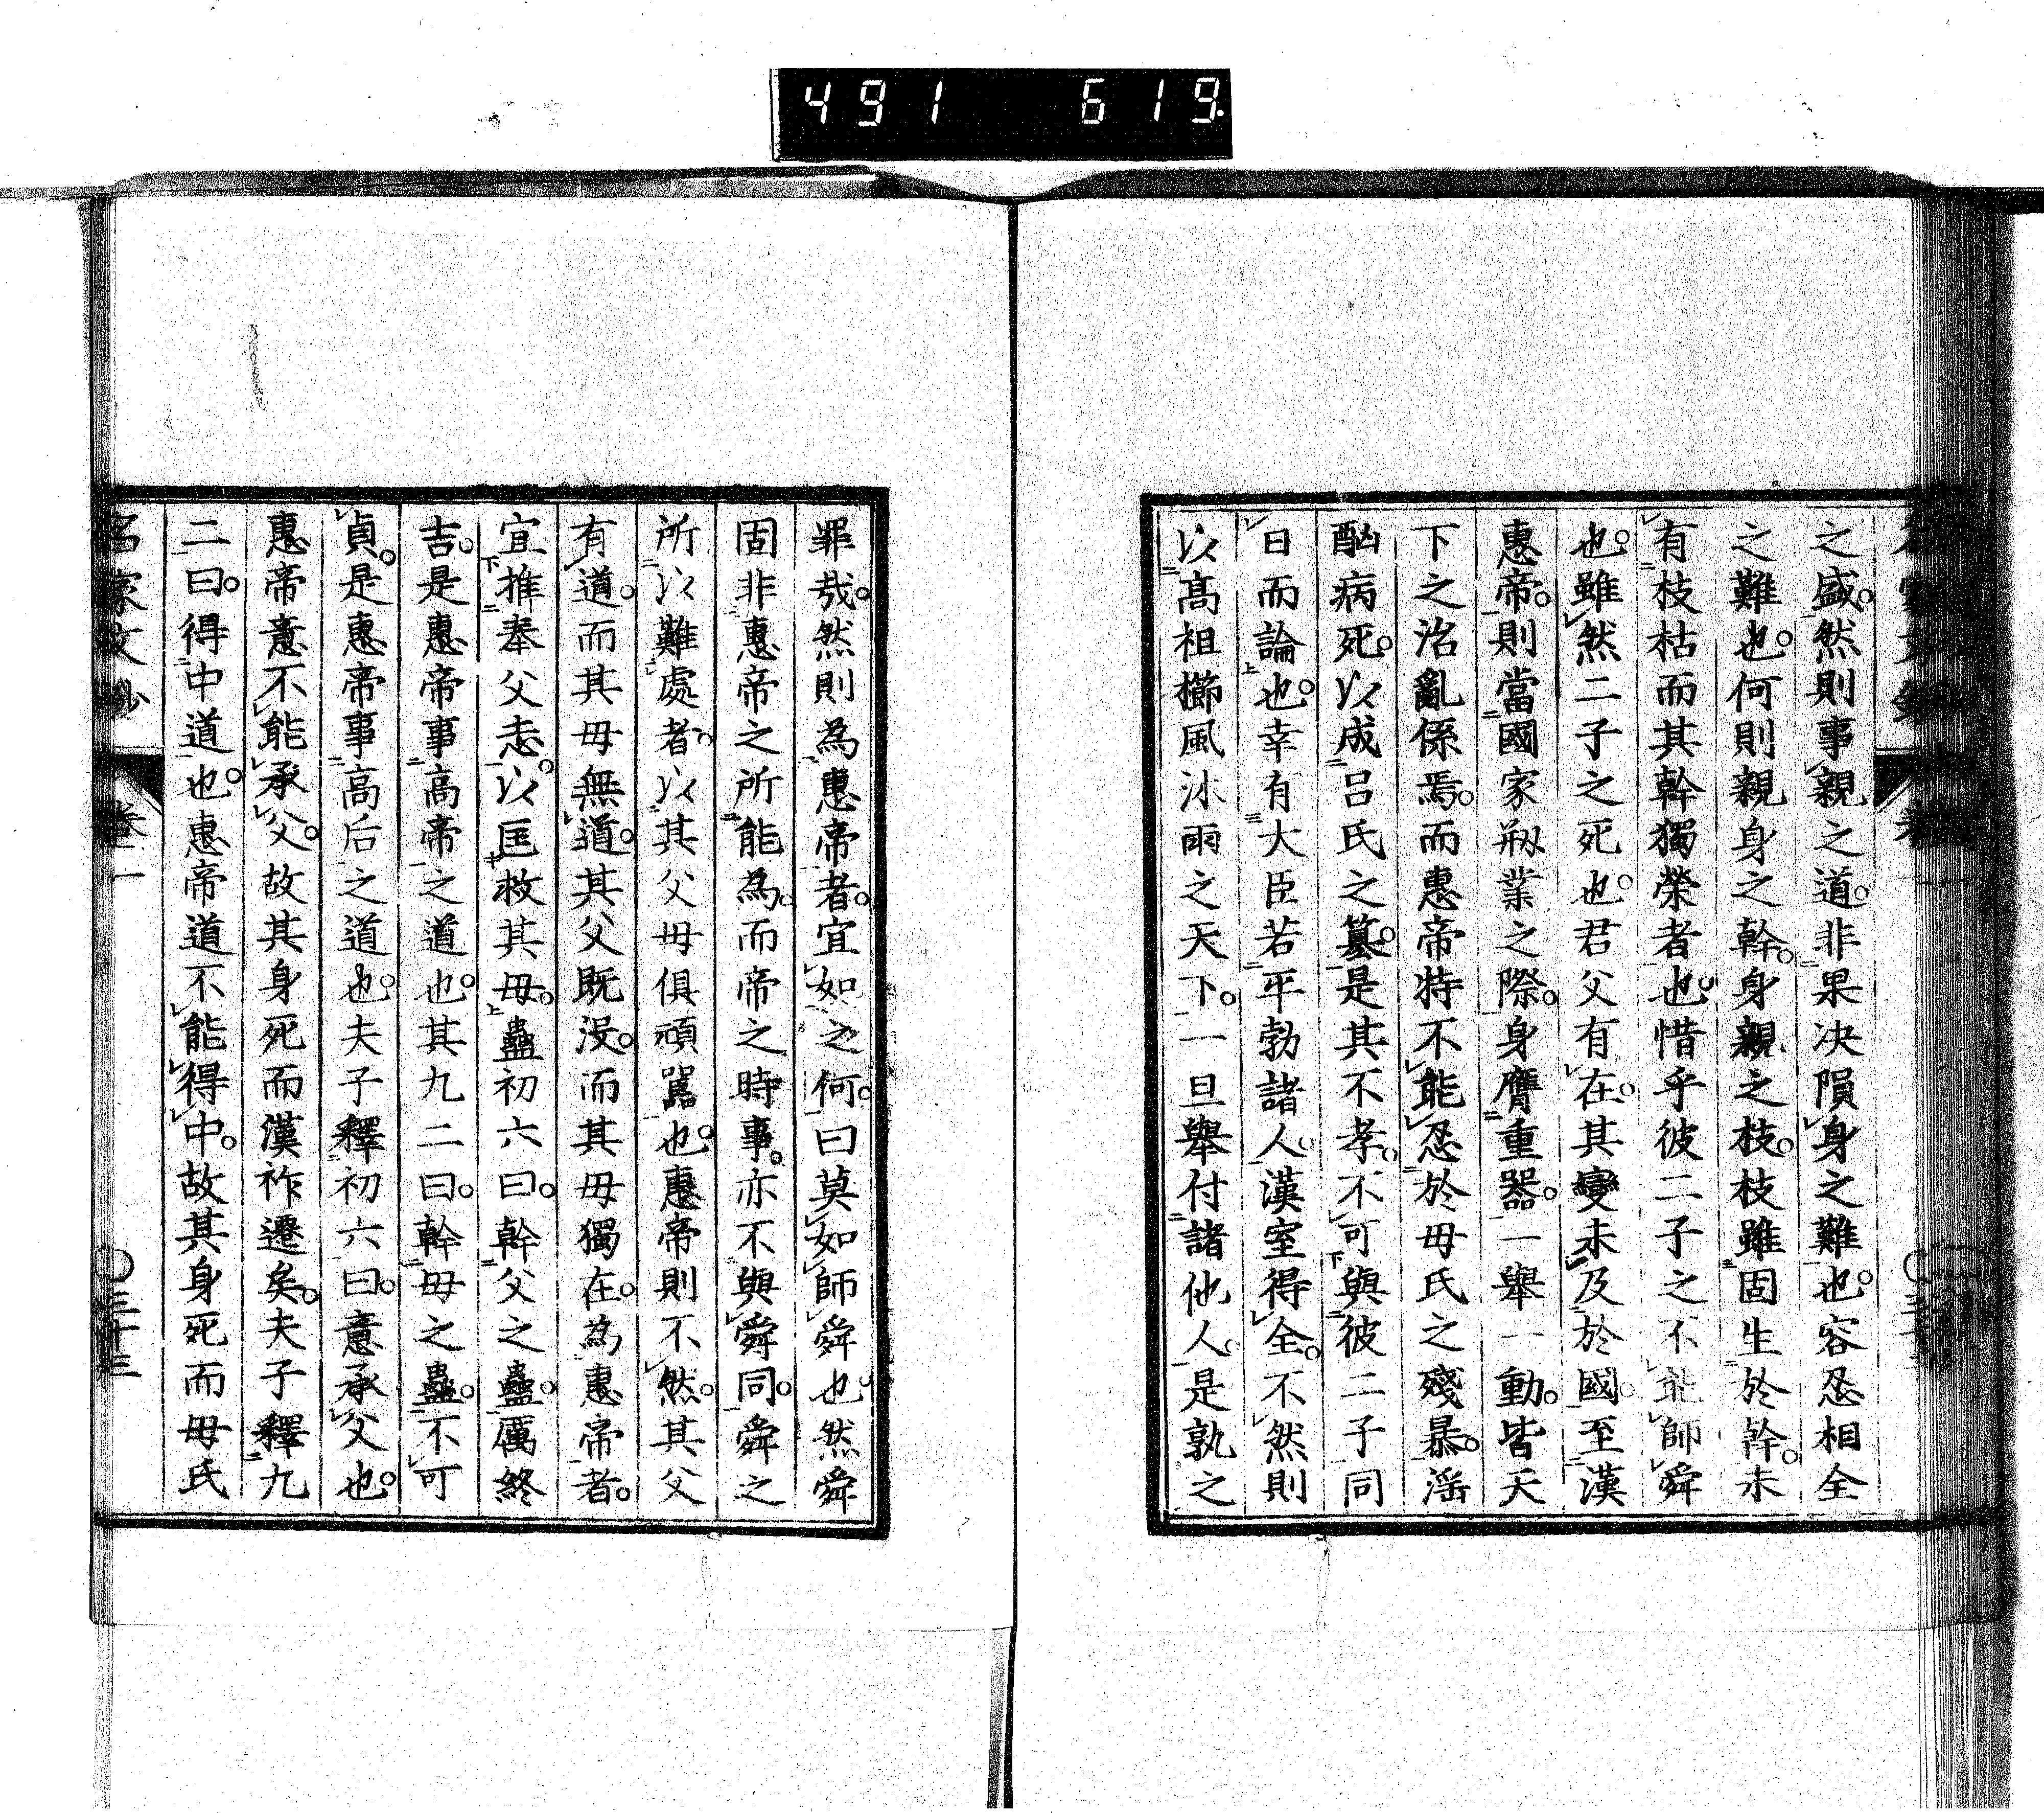 491 619.
之盛。然則事親之道。非果决隕身之難也。容忍相全
之難也。何則親身之幹。身親之枝。枝雖固生於幹。未
有枝枯而其幹獨榮者也。惜乎彼二子之不能師舜
也。雖然二子之死也。君父有在。其變未及於國。至漢
惠帝。則當國家刱業之際。身膺重器。一舉一動。皆天
下之治亂係焉。而惠帝特不能忍於母氏之殘暴。滛
酗病死。以成呂氏之簒。是其不孝。不可與彼二子同
日而論也。幸有大臣若平勃諸人。漢室得全。不然則
以高祖櫛風沐雨之天下。一旦舉付諸他人。是孰之
罪哉。然則為惠帝者。宜如之何。曰莫如師舜也。然舜
固非惠帝之所能為。而帝之時事。亦不與舜同。舜之
所以難處者。以其父母俱頑嚚也。惠帝則不然。其父
有道。而其母無道。其父既没。而其母獨在。為惠帝者。
宜推奉父志。以匡救其母。蠱初六曰。幹父之蠱。厲終
吉。是惠帝事高帝之道也。其九二曰。幹母之蠱。不可
貞。是惠帝事高后之道也。夫子釋初六曰。意承父也。
惠帝意不能承父。故其身死而漢祚遷矣。夫子釋九
二曰。得中道也。惠帝道不能得中。故其身死而母氏
名家文抄 卷一 〇三十三